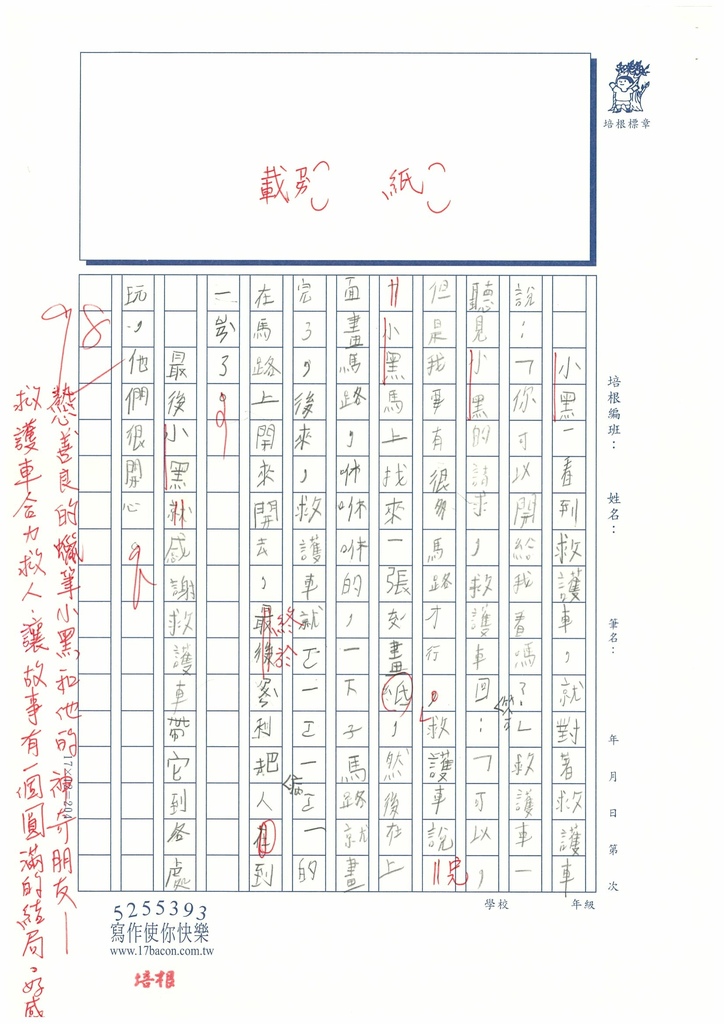 載 紙
培根標章
培根編班：
姓名：
筆名：
年 月 日 第 次
學校 年級
小黑一看到救護車，就對著救護車
說：「你可以開給我看嗎？」救護車一
聽見小黑的請求，救護車回：「可以，
但是我要有很多馬路才行。救護車說完
小黑馬上找來一張畫紙，然後在上
面畫馬路，咻咻咻的，一下子馬路就畫
完了，後來，救護車就ㄛ一ㄛ一ㄛ一的
在馬路上開來開去，最後終於順利把病人到
一
最後小黑感謝救護車帶它到各處
玩，他們很開心。
98
善良的蠟筆小黑和他的神奇朋友—
救護車合力救人，讓故事有一個圓滿的結局。好感
5255393
寫作使你快樂
www.17bacon.com.tw
培根